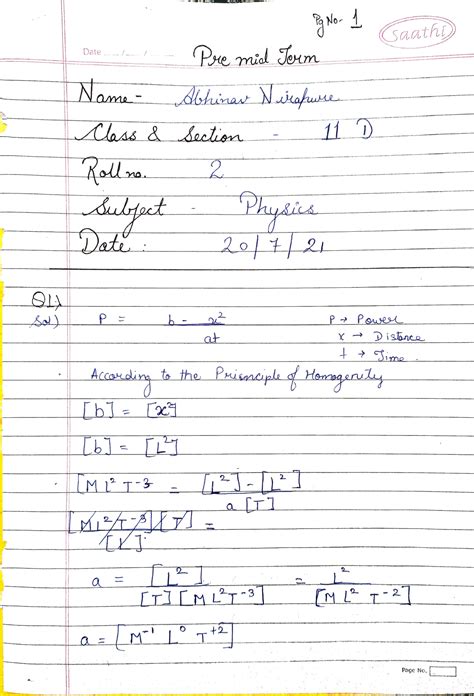 Pg No- 1
saathi
Date ..../..../....
Pre mid Term
Name - Abhinav Nirapure
Class & Section - 11 D
Roll no. 2
Subject - Physics
Date : 20/7/21
Q1)
Sol) P = b - x² / at P → Power
x → Distance
t → Time
According to the Prisnciple of Homogenity
[b] = [x²]
[b] = [L²]
[M L² T-3 = [L²] - [L²] / a [T]
[M L² T-3] [T] / [L] =
a = [L²] / [T] [M L² T-3] = L² / [M L² T-2]
a = [M-1 L0 T+2]
Page No.